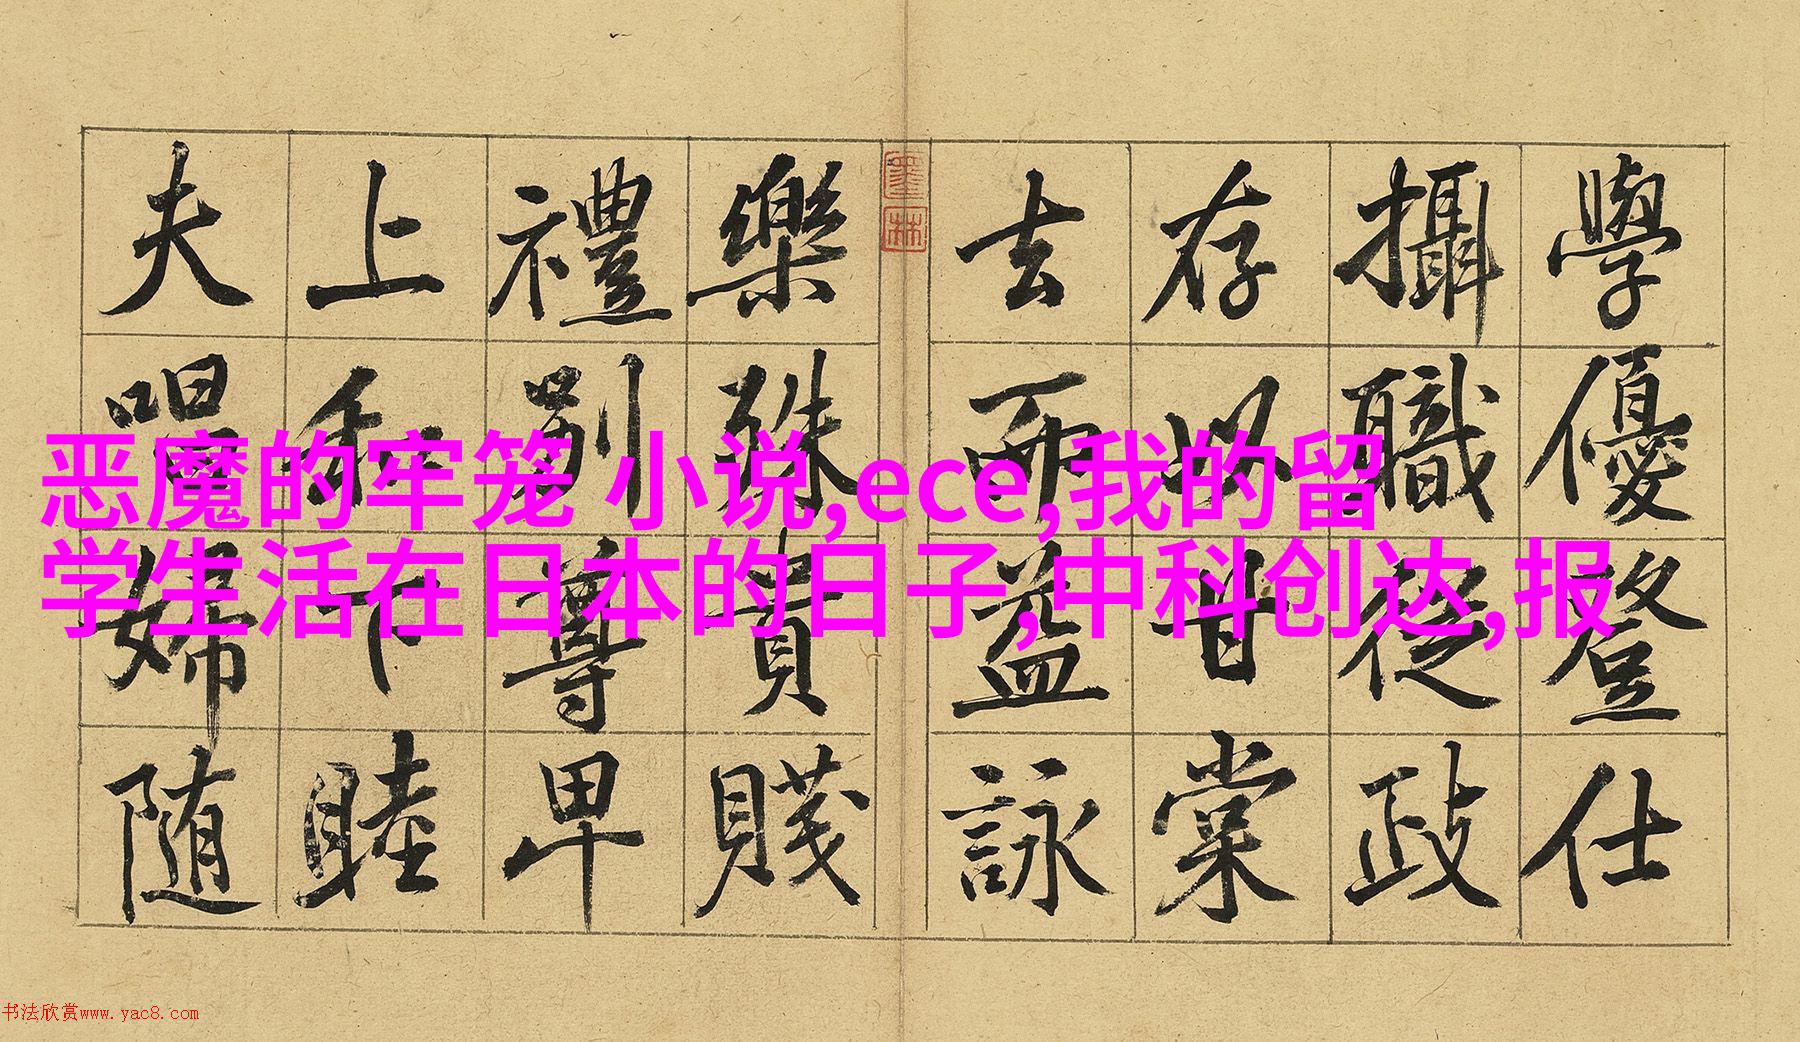 學優登仕
攝職從政
存以甘棠
去而益詠
墨林
樂殊貴賤
禮別尊卑
上和下睦
夫唱婦随
恶魔的牢笼 小说,ece,我的留
学生活在日本的日子,中科创达,报
书法欣赏www.yac8.com